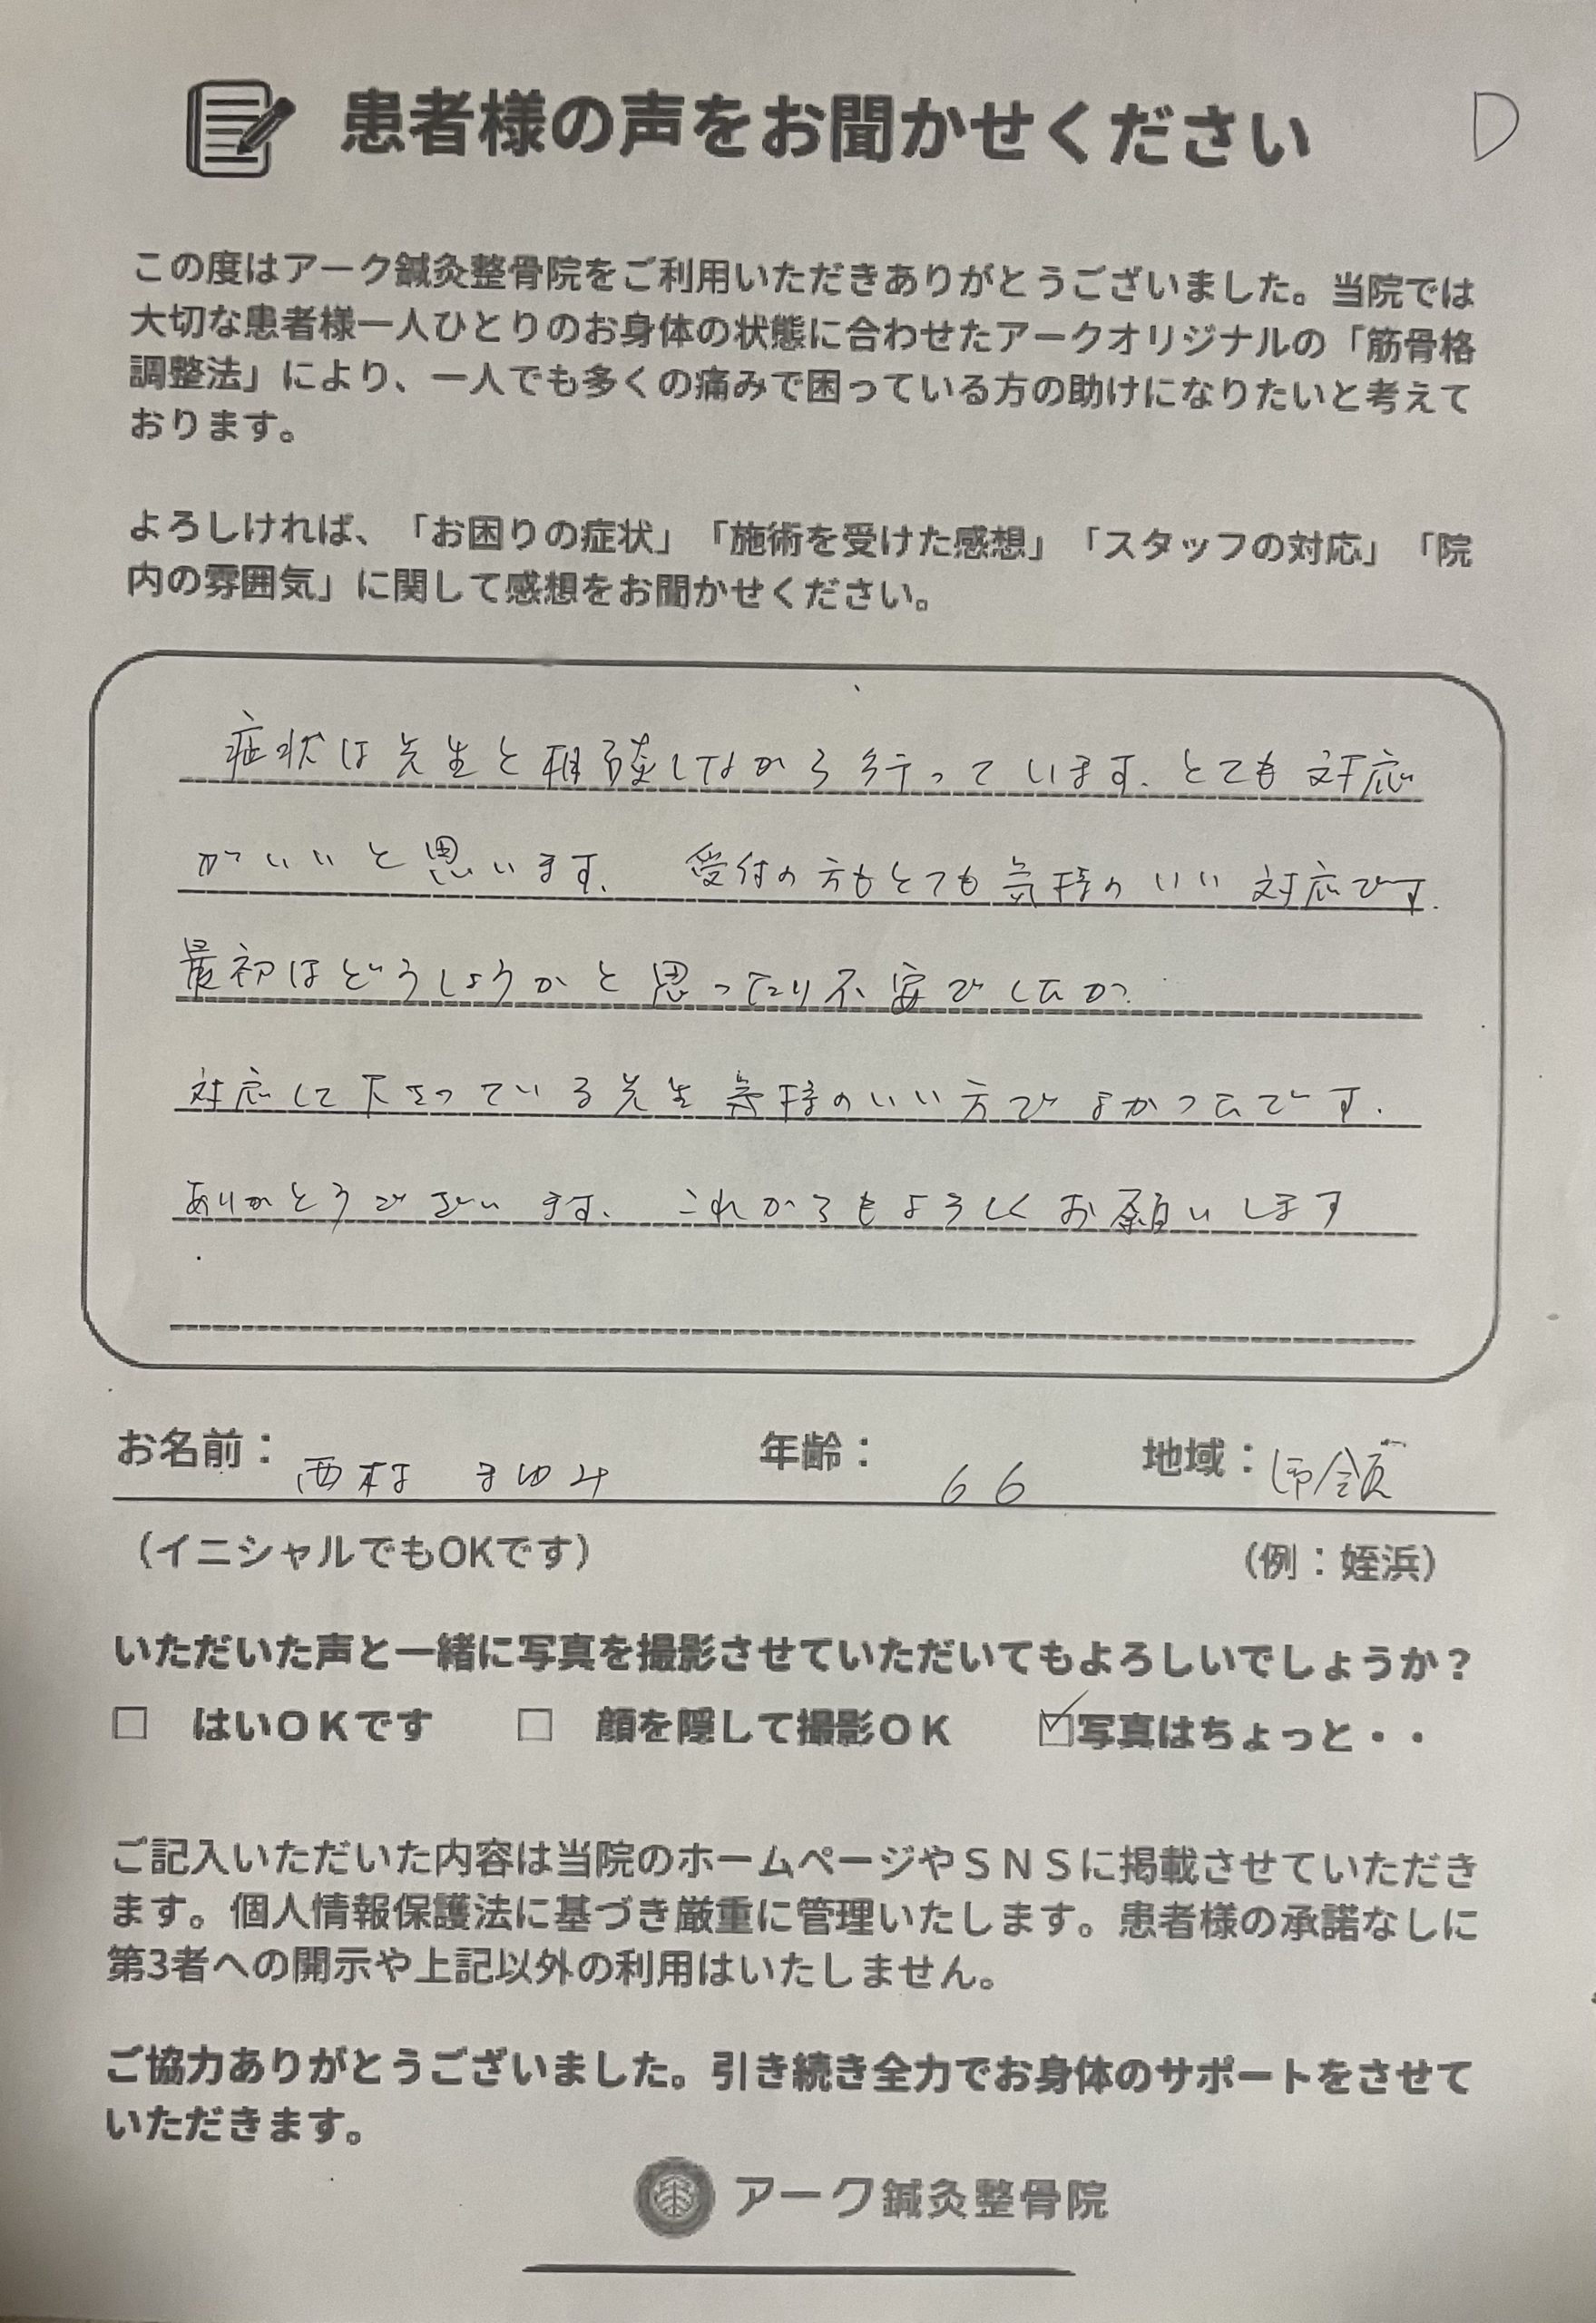 患者様の声をお聞かせください
D
この度はアーク鍼灸整骨院をご利用いただきありがとうございました。当院では
大切な患者様一人ひとりのお身体の状態に合わせたアークオリジナルの「筋骨格
調整法」により、一人でも多くの痛みで困っている方の助けになりたいと考えて
おります。
よろしければ、「お困りの症状」「施術を受けた感想」「スタッフの対応」「院
内の雰囲気」に関して感想をお聞かせください。
症状は先生と相談しながら行っています。とても対応
がいいと思います。 受付の方もとても気持のいい対応です。
最初はどうしようかと思ったり不安でしたが
対応して下さっている先生気持のいい方でよかったです。
ありがとうございます。 これからもよろしくお願いします
お名前： 西村 まゆみ 年齢： 66 地域：
（イニシャルでもOKです） （例：姪浜）
いただいた声と一緒に写真を撮影させていただいてもよろしいでしょうか？
□ はいＯＫです □ 顔を隠して撮影ＯＫ ☑写真はちょっと・・
ご記入いただいた内容は当院のホームページやＳＮＳに掲載させていただき
ます。個人情報保護法に基づき厳重に管理いたします。患者様の承諾なしに
第3者への開示や上記以外の利用はいたしません。
ご協力ありがとうございました。引き続き全力でお身体のサポートをさせて
いただきます。
アーク鍼灸整骨院